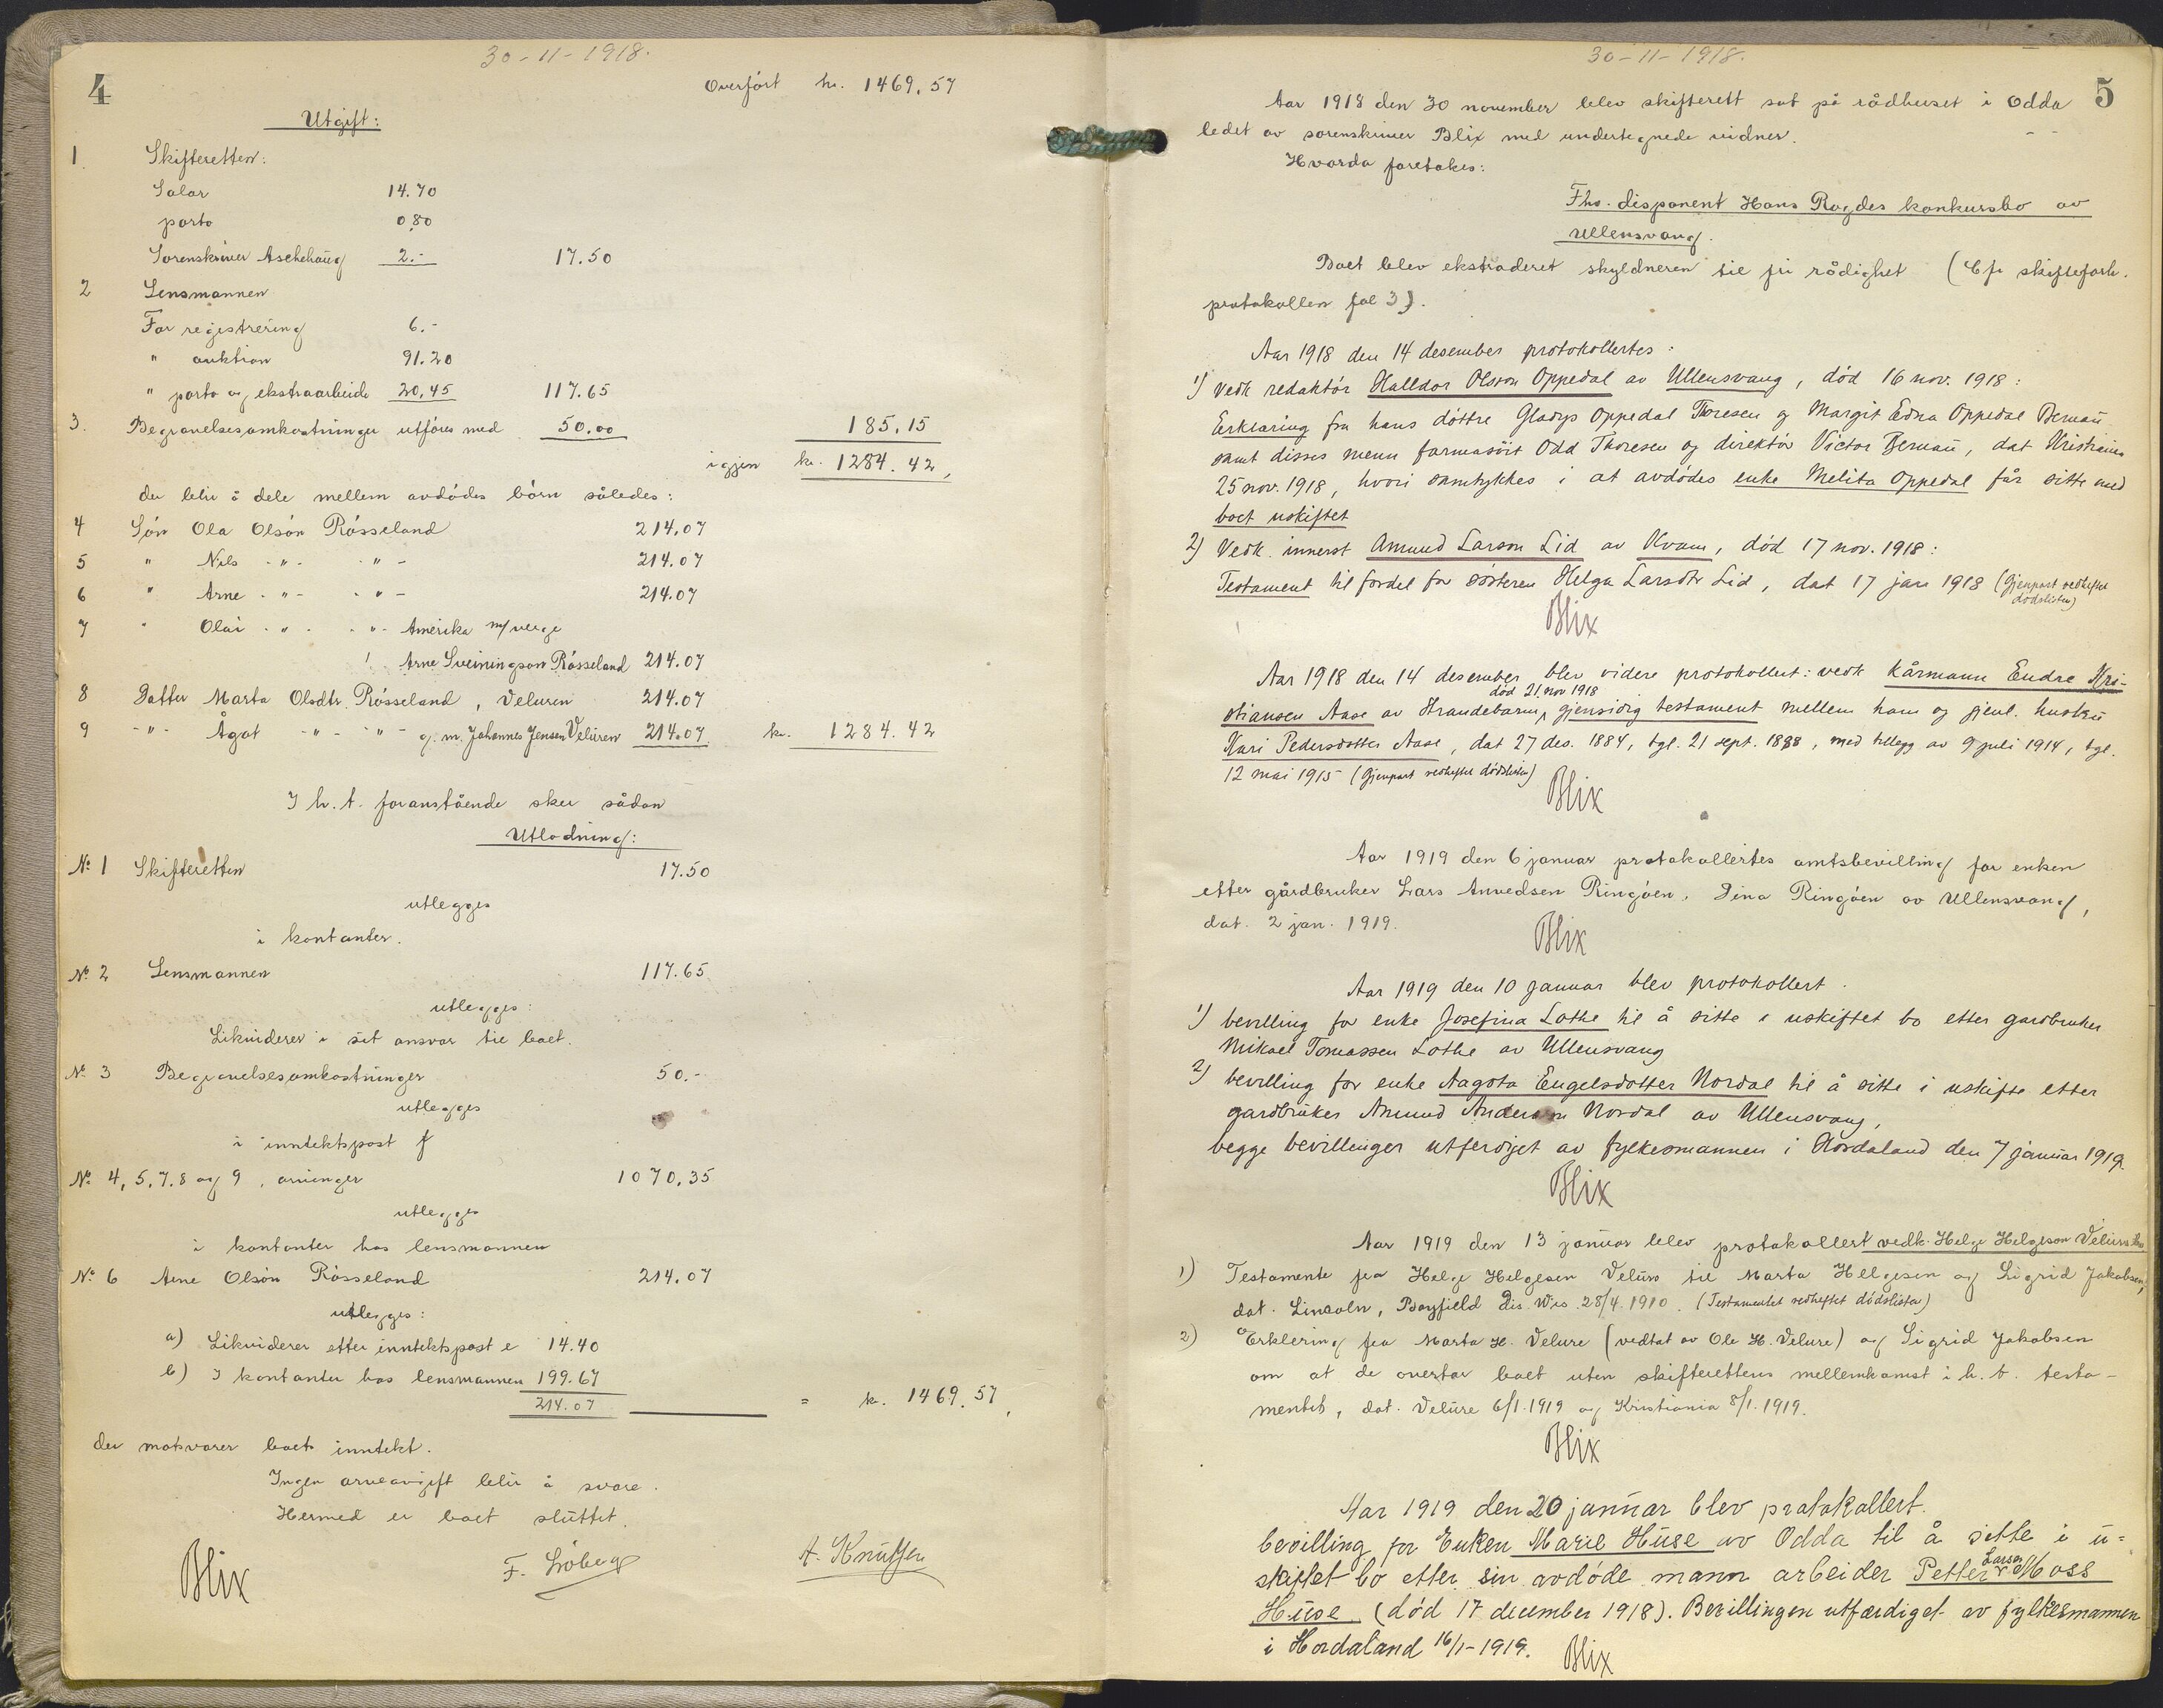 30-11-1918.
4
Overført kr. 1469.57
Utgift:
1. Skifteretten:
Salar 14.70
porto 0.80
Sorenskriver Aschehoug 2.- 17.50
2 Lensmannen
For registrering 6.-
" auktion 91.20
" porto og ekstraarbeide 20.45 117.65
3. Begravelsesomkostninger utføres med 50.00 185.15
igjen kr. 1284.42,
der blir å dele mellem avdødes børn således:
4 Søn Ola Olsøn Røsseland 214.07
5 " Nils -"- -"- 214.07
6 " Arne -"- -"- 214.07
7 " Olai -"- -"- Amerika m/verge
Arne Sveiningson Røsseland 214.07
8 Datter Marta Olsdtr. Røsseland, Veluren 214.07
9 -"- Ågot -"- -"- g. m. Johannes Jensen Veluren 214.07 kr. 1284.42
I h. t. foranstående sker sådan
Utlodning:
No 1 Skifteretten 17.50
utlegges
i kontanter.
No 2 Lensmannen 117.65
utlegges:
Likviderer i sit ansvar til boet.
No 3 Begravelsesomkostninger 50.-
utlegges
i inntektspost f
No 4, 5, 7, 8 og 9, arvinger 1070.35
utlegges
i kontanter hos lensmannen
No 6 Arne Olsøn Røsseland 214.07
utlegges:
a) Likviderer etter inntektspost e 14.40
b) I kontanter hos lensmannen 199.67
214.07 = kr. 1469.57,
der motsvarer boets inntekt.
Ingen arveavgift blir å svare.
Hermed er boet sluttet.
Blix F. Løberg A. Knutsen
30-11-1918.
5
Aar 1918 den 30 november blev skifterett sat på rådhuset i Odda
ledet av sorenskriver Blix med undertegnede vidner.
Hvorda foretakes:
Fhv. disponent Hans Rogdes konkursbo av
Ullensvang.
Boet blev ekstraderet skyldneren til fri rådighet (Cfr skifteforh.
protokollen fol 3).
Aar 1918 den 14 desember protokollertes:
1) vedk redaktør Halldor Olsson Oppedal av Ullensvang, død 16 nov. 1918:
Erklæring fra hans døttre Gladys Oppedal Thoresen og Margit Edna Oppedal Bernau
samt disses menn farmasøit Odd Thoresen og direktør Victor Bernau, dat Kristiania
25 nov. 1918, hvori samtykkes i at avdødes enke Melita Oppedal får sitte med
boet uskiftet
2) Vedk. innerst Amund Larson Lid av Kvam, død 17 nov. 1918:
Testament til fordel for søsteren Helga Larsdtr Lid, dat 17 jan 1918 (Gjenpart vedheftet
dødslisten)
Blix
Aar 1918 den 14 desember blev videre protokollert: vedk kårmann Endre Kri-
død 21. nov 1918
stiansen Aase av Strandebarm, gjensidig testament mellem ham og gjenl. hustru
Kari Pedersdotter Aase, dat 27 des. 1884, tgl. 21 sept. 1888, med tillegg av 9 juli 1914, tgl.
12 mai 1915 (Gjenpart vedheftet dødslisten)
Blix
Aar 1919 den 6 januar protokollertes amtsbevilling for enken
etter gårdbruker Lars Anvedsen Ringøen, Dina Ringøen av Ullensvang,
dat. 2 jan. 1919.
Blix
Aar 1919 den 10 januar blev protokollert.
1) bevilling for enke Josefina Lothe til å sitte i uskiftet bo etter gardbruker
Mikael Tomassen Lothe av Ullensvang
2) bevilling for enke Aagota Engelsdotter Nordal til å sitte i uskifte etter
gardbruker Amund Anderson Nordal av Ullensvang,
begge bevillinger utferdiget av fylkesmannen i Hordaland den 7 januar 1919.
Blix
Aar 1919 den 13 januar blev protokollert vedk. Helge Helgeson Velures bo
1) Testamente fra Helge Helgesen Velure til Marta Helgesen og Sigrid Jakobsen,
dat. Lincoln, Bayfield dis. Wis. 28/4. 1910. (Testamentet vedheftet dødslisten)
2) Erklering fra Marta H. Velure (vedtat av Ole H. Velure) og Sigrid Jakobsen
om at de overtar boet uten skifterettens mellemkomst i h. t. testa-
mentet, dat. Velure 6/1. 1919 og Kristiania 8/1. 1919.
Blix
Aar 1919 den 20 januar blev protokollert.
bevilling for Enken Marie Huse av Odda til å sitte i u-
skiftet bo etter sin avdøde mann arbeider Petter Larsen Moss
Huse (død 17 december 1918). Bevillingen utfærdiget av fylkesmannen
i Hordaland 16/1-1919. Blix